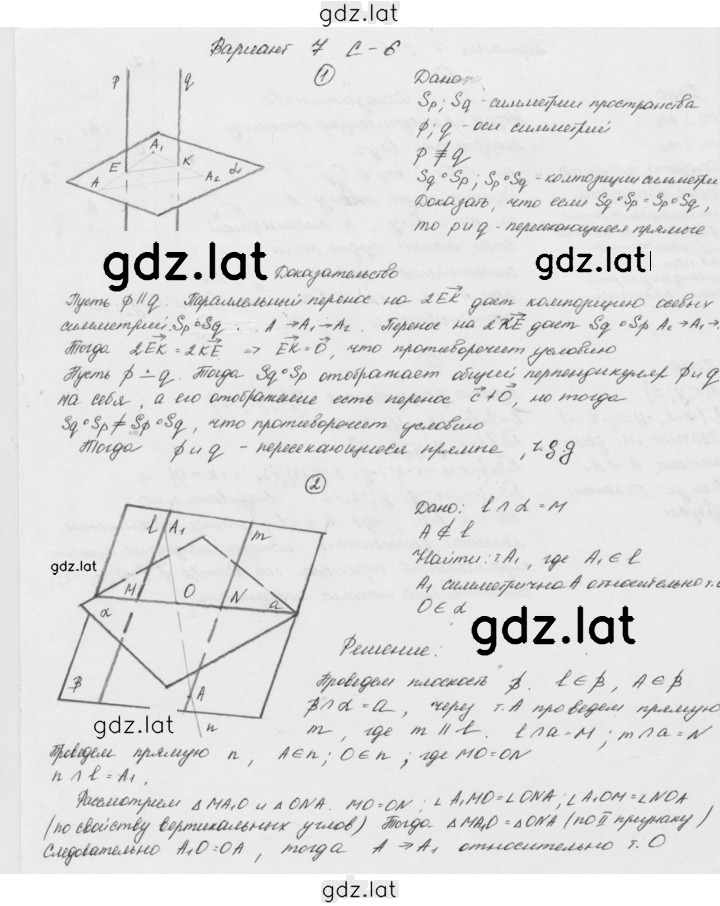 gdz.lat
Вариант 7 С-6
1
p q
A₁
E K
A A₂ α₁
Дано:
Sp; Sq - симметрии пространства
p; q - оси симметрий
p ≠ q
Sq∘Sp; Sp∘Sq - композиции симметрии
Доказать, что если Sq∘Sp = Sp∘Sq,
то p и q - пересекающиеся прямые
gdz.lat gdz.lat
Доказательство
Пусть p ∥ q. Параллельный перенос на 2EK даст композицию осевых
симметрий Sp∘Sq. A → A₁ → A₂. Перенос на 2KE даст Sq∘Sp A₂ → A₁ →
Тогда 2EK = 2KE ⇒ EK = O, что противоречит условию
Пусть p ∸ q. Тогда Sq∘Sp отображает общий перпендикуляр p и q
на себя, а его отображение есть перенос c ≠ O, но тогда
Sq∘Sp ≠ Sp∘Sq, что противоречит условию
Тогда p и q - пересекающиеся прямые, ч.д.
2
Дано: l ∩ α = M
A ∉ l
Найти: т A₁, где A₁ ∈ l
A₁ симметрична A относительно т.
O ∈ α
l A₁ m
gdz.lat
M O N a
α
β
A
n
gdz.lat
Решение:
Проведем плоскость β. l ∈ β, A ∈ β
β ∩ α = a, через т. A проведем прямую
gdz.lat
m, где m ∥ l. l ∩ a = M; m ∩ a = N
Проведем прямую n, A ∈ n; O ∈ n; где MO = ON
n ∩ l = A₁.
Рассмотрим △MA₁O и △ONA. MO = ON; ∠A₁MO = ∠ONA; ∠A₁OM = ∠NOA
(по свойству вертикальных углов) Тогда △MA₁O = △ONA (по II признаку)
Следовательно A₁O = OA, тогда A → A₁ относительно т. O
gdz.lat